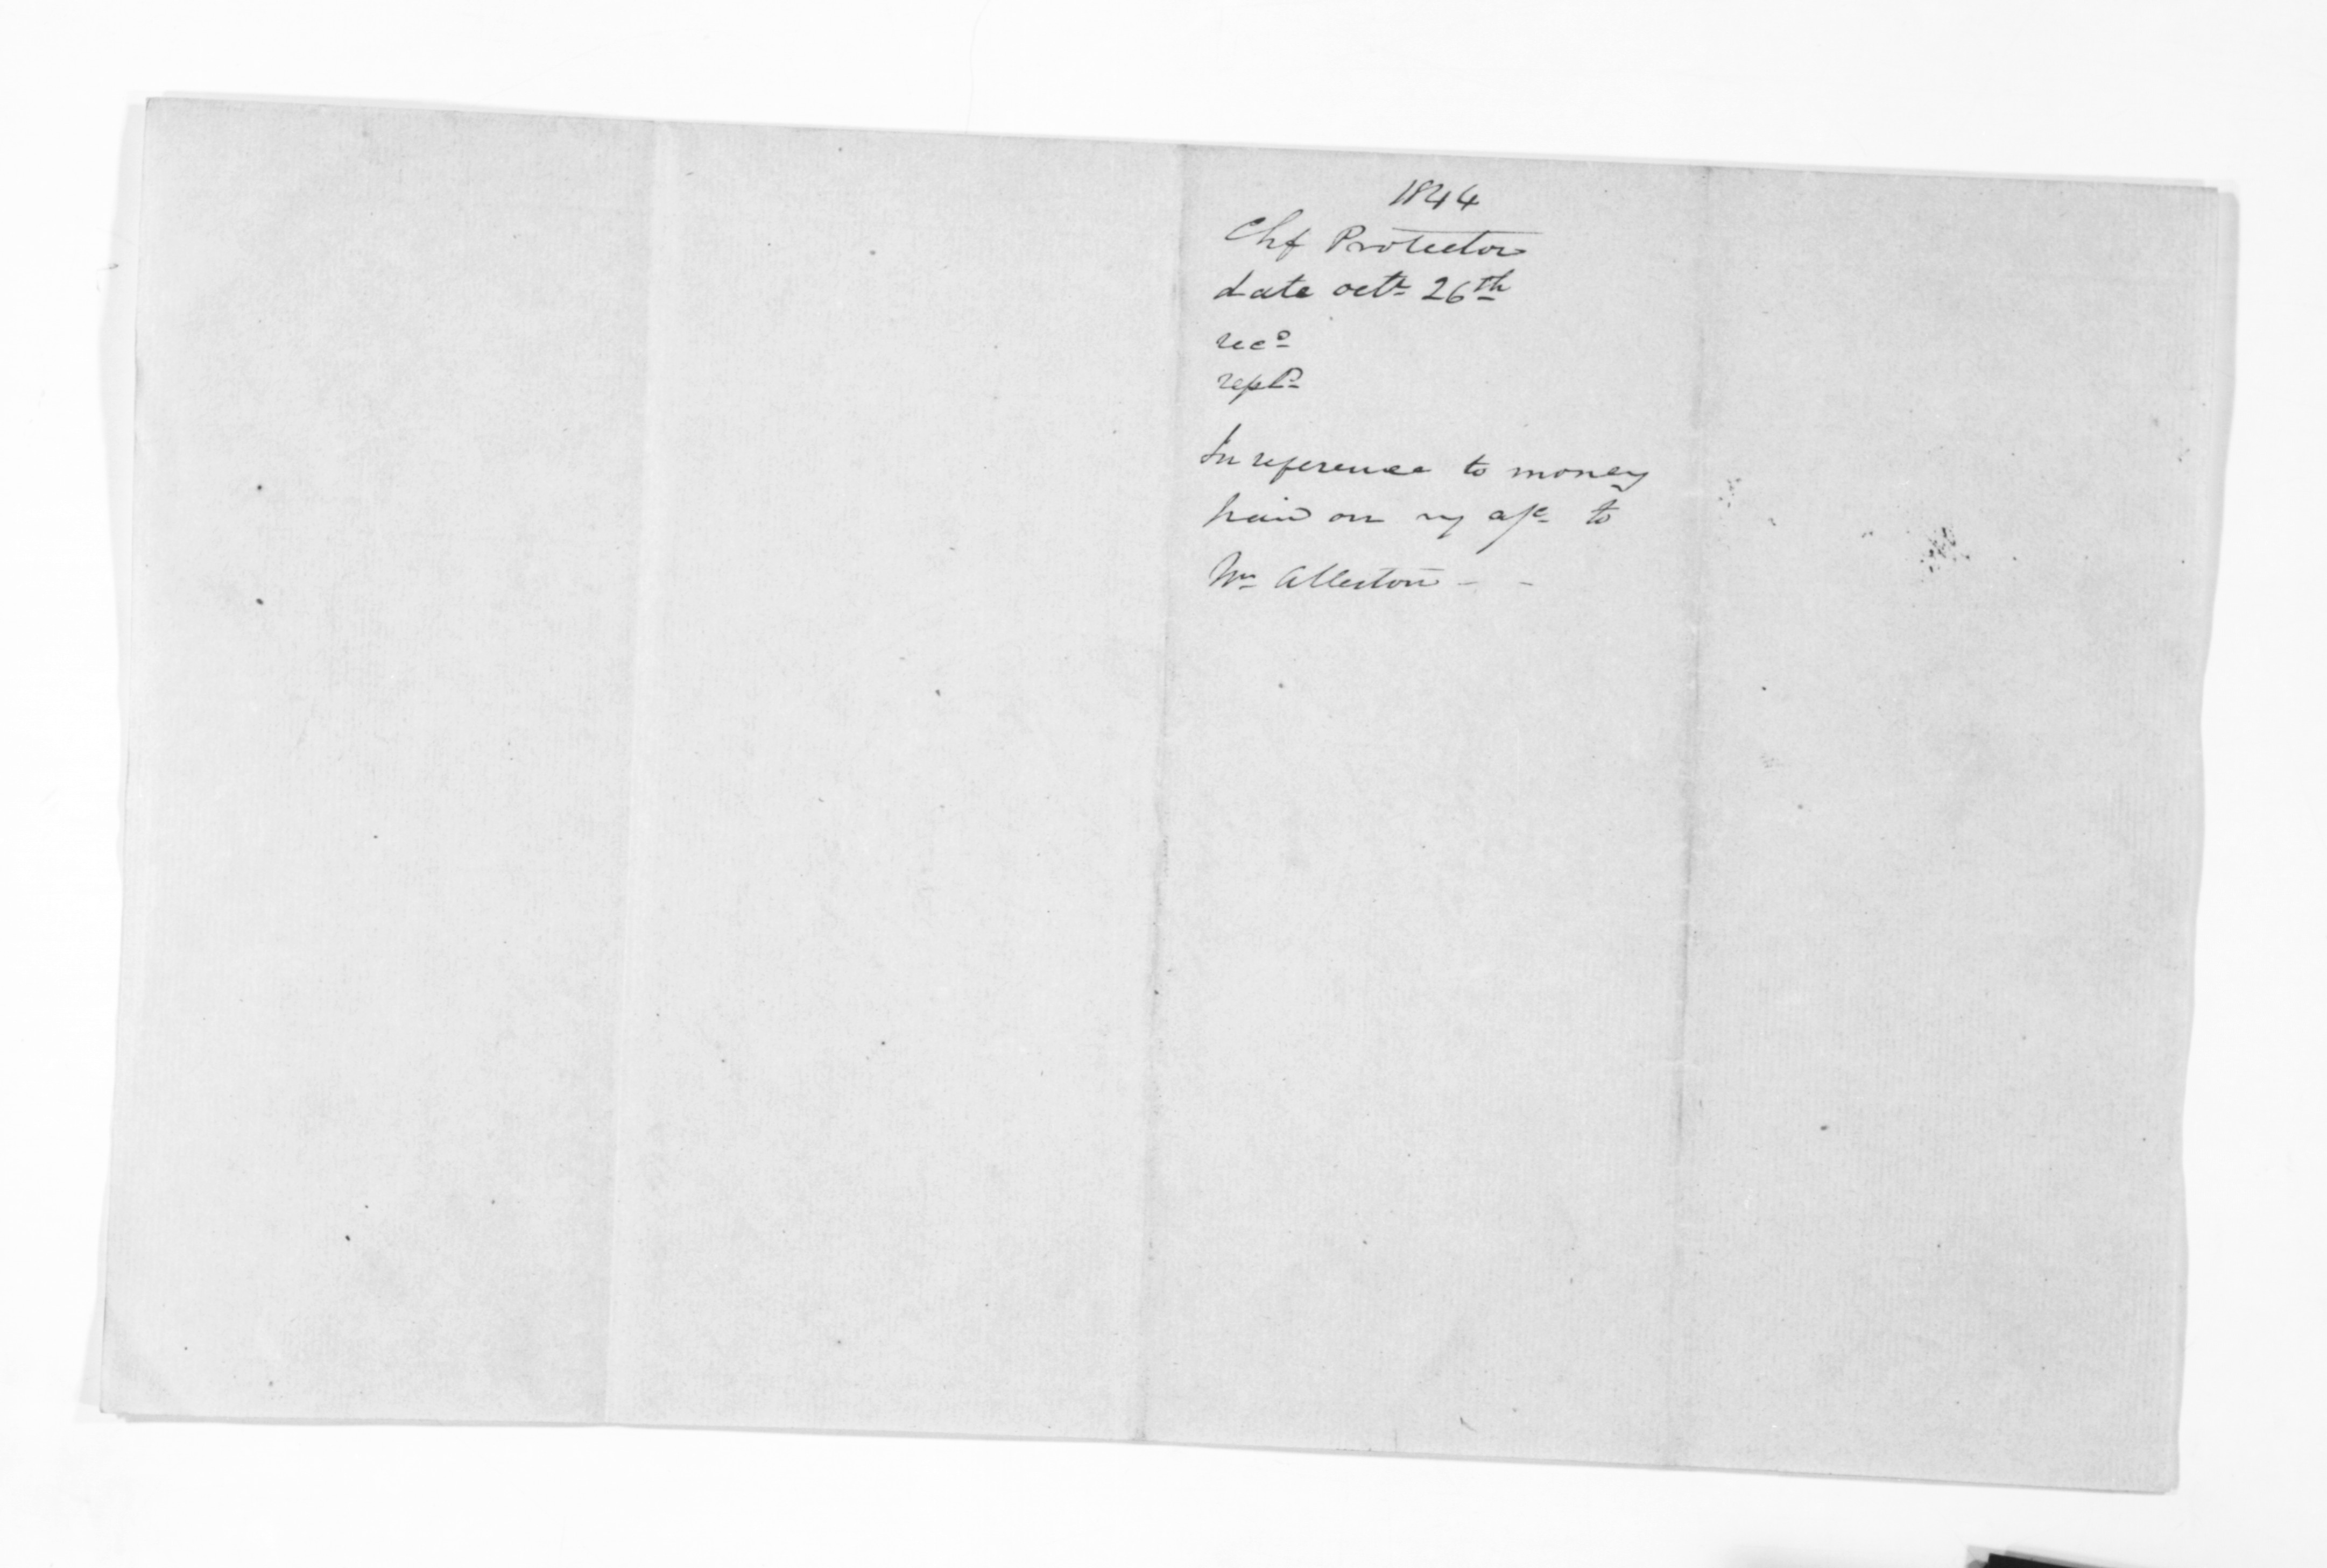 1844
Chf Protector
date octr 26th
recd
repld
In reference to money
paid on my a/c to
Allerton - -